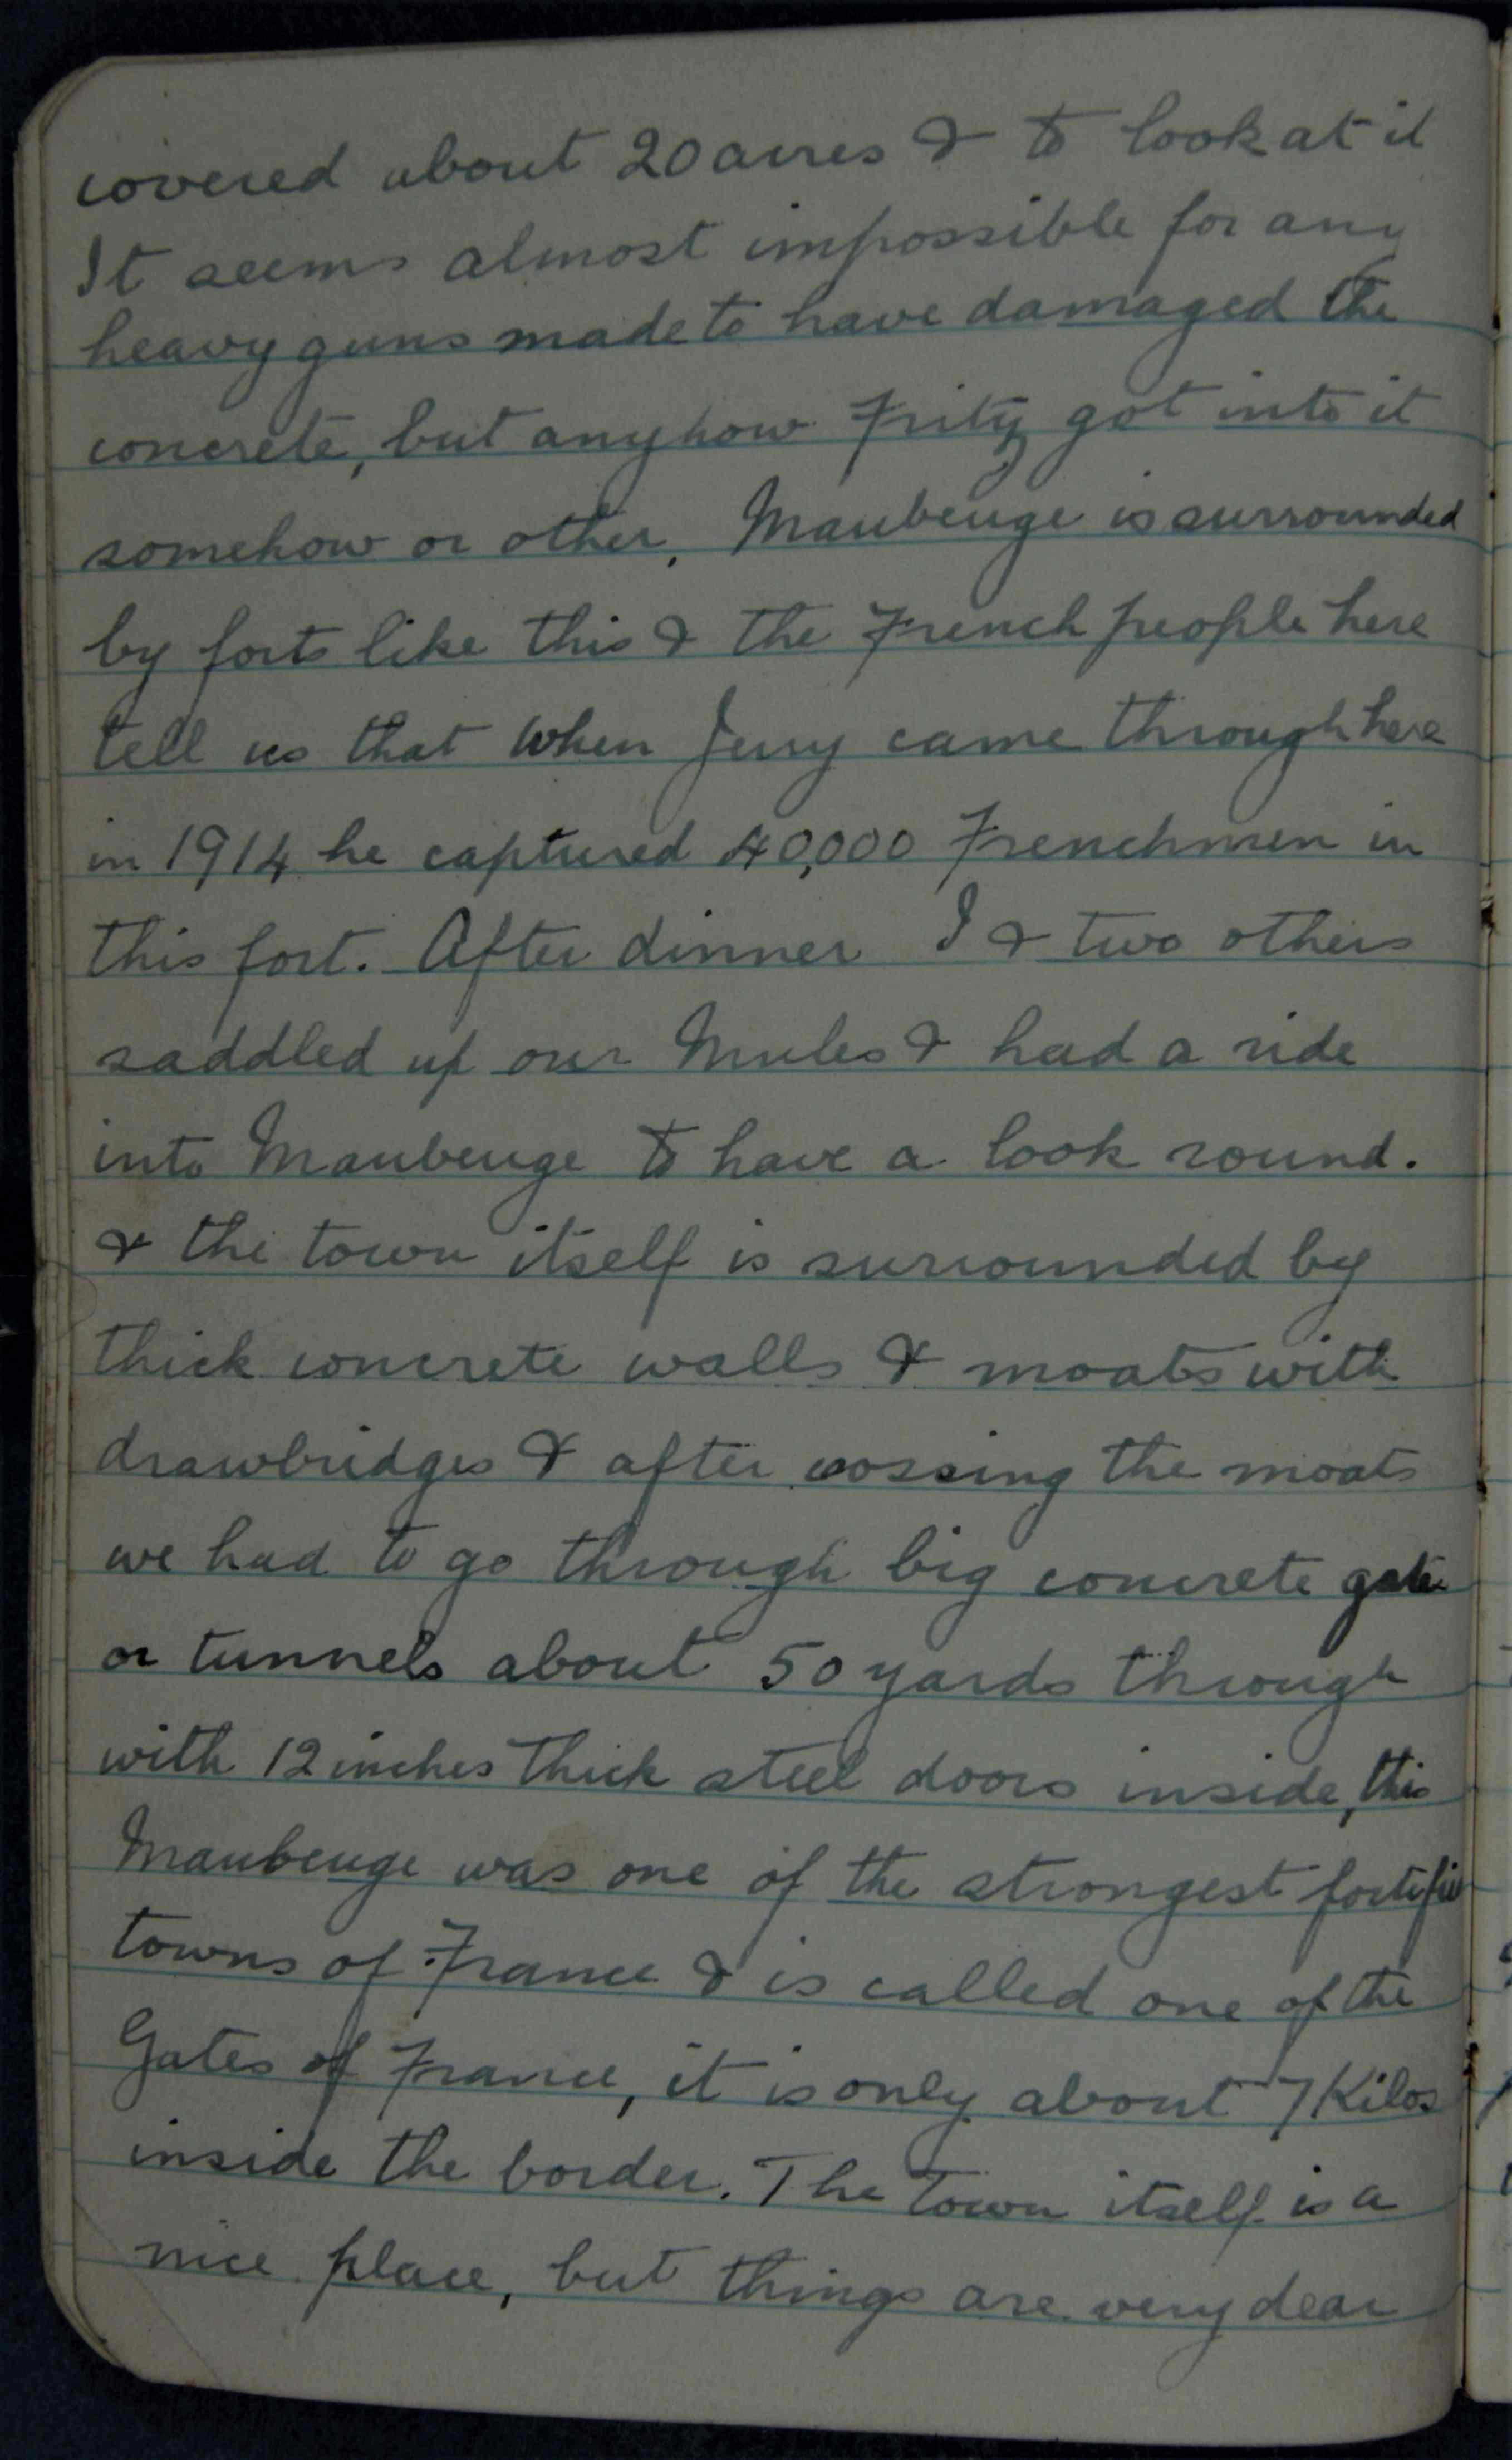 covered about 20 acres & to look at it
It seems almost impossible for any
heavy guns made to have damaged the
concrete, but anyhow Fritz got into it
somehow or other. Maubeuge is surrounded
by forts like this & the French people here
tell us that when Jerry came through here
in 1914 he captured 40,000 Frenchmen in
this fort. After dinner I & two others
saddled up our Mules & had a ride
into Maubeuge to have a look round.
& the town itself is surrounded by
thick concrete walls & moats with
drawbridges & after crossing the moats
we had to go through big concrete gates
or tunnels about 50 yards through
with 12 inches thick steel doors inside, this
Maubeuge was one of the strongest fortified
towns of France & is called one of the
Gates of France, it is only about 7 Kilos
inside the border. The Town itself is a
nice place, but things are very dear